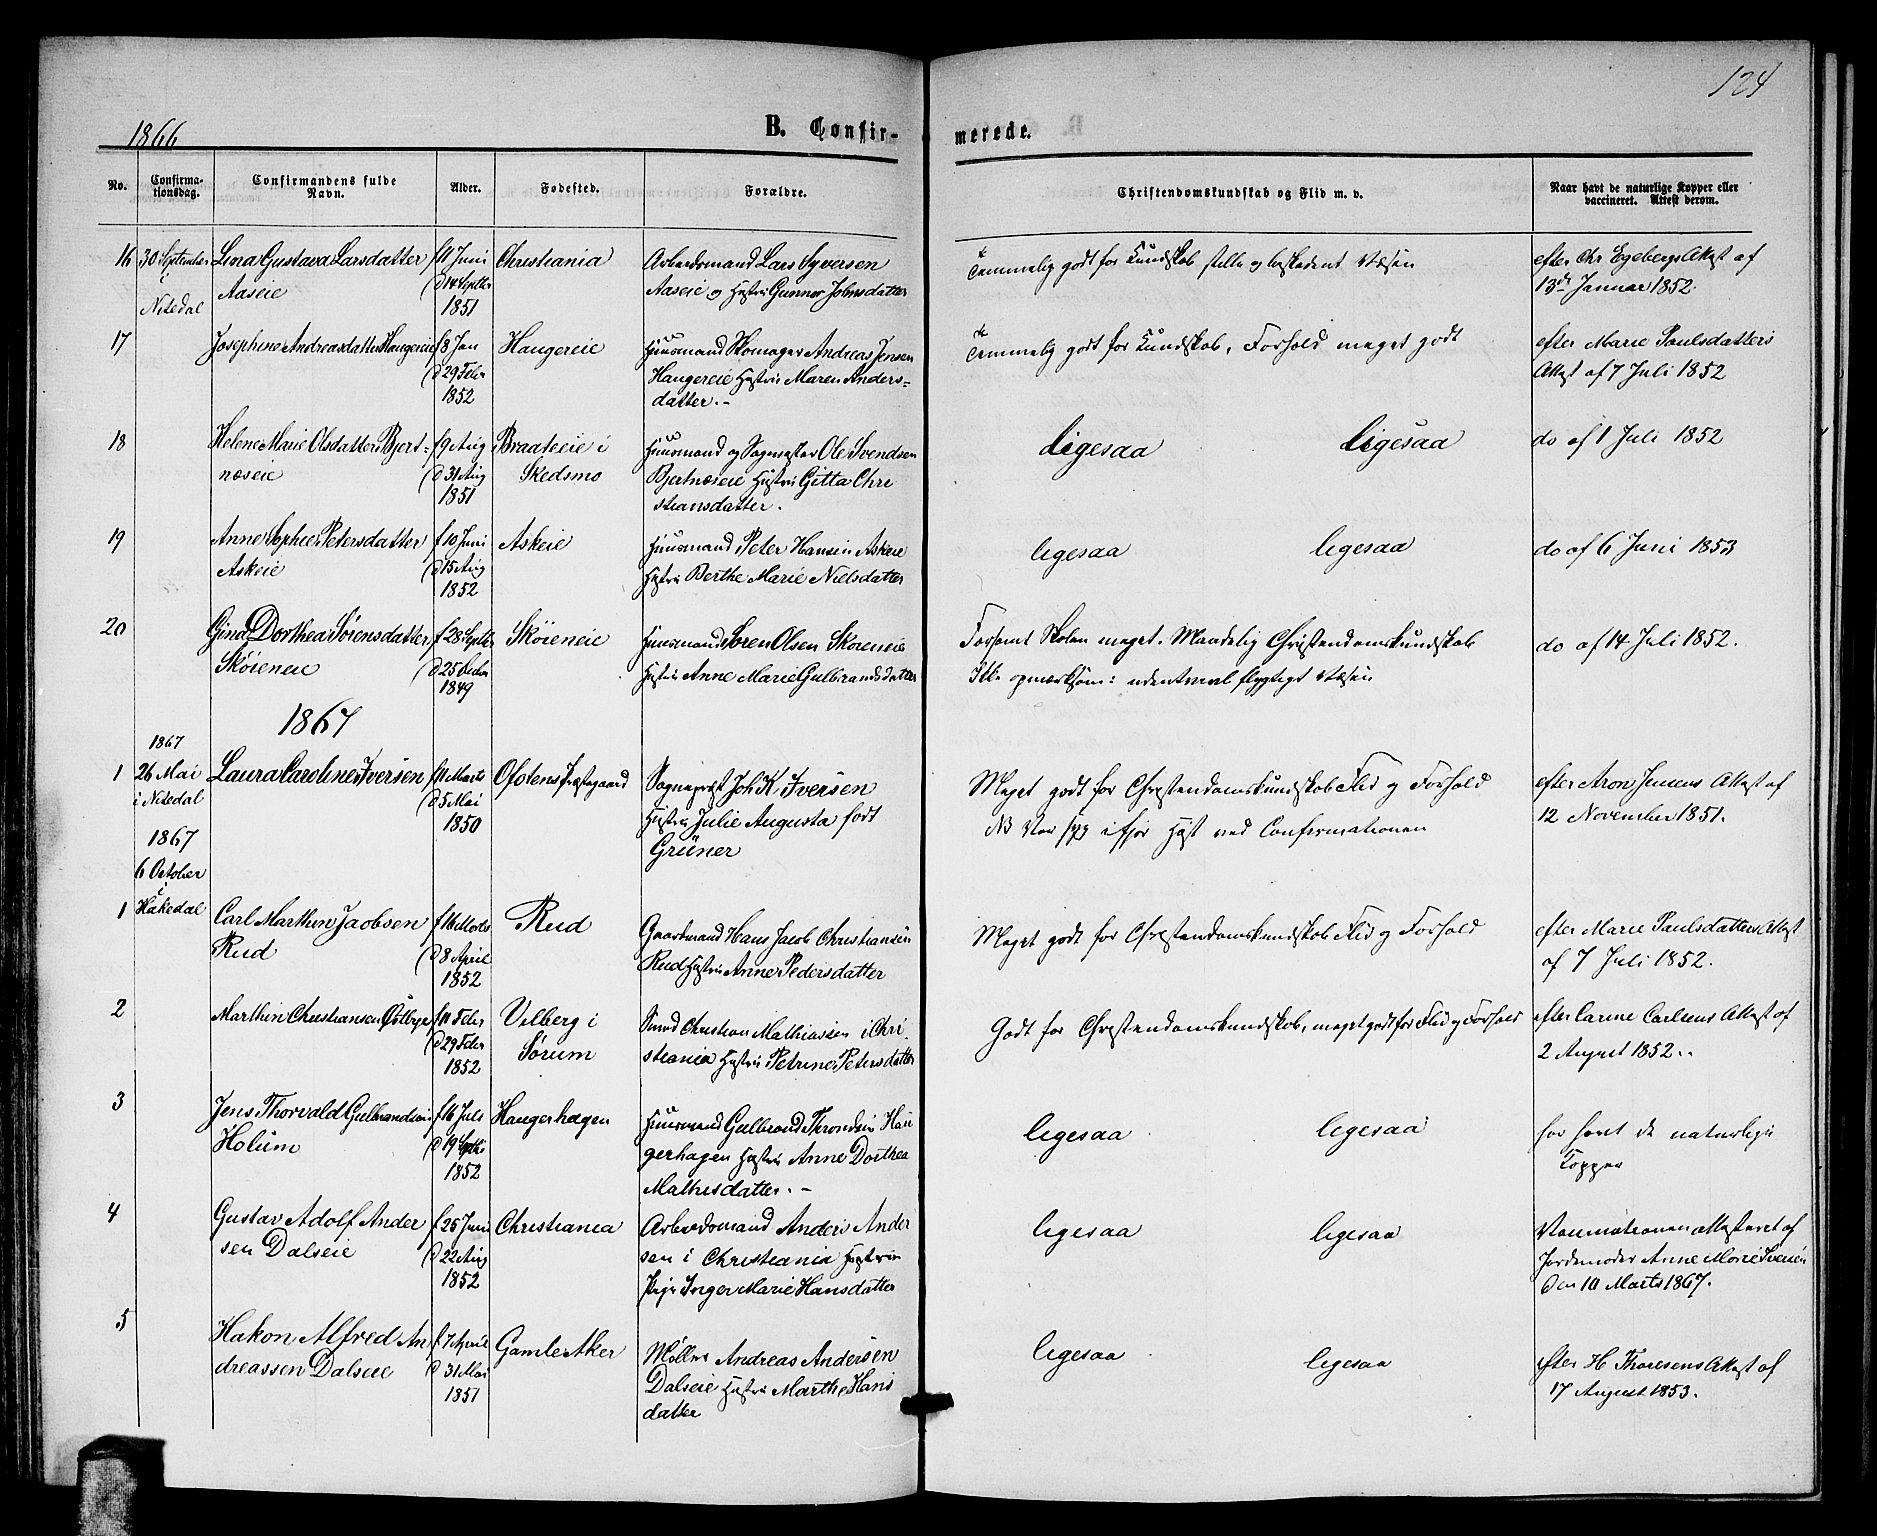 124
1866
B. Confirmerede.
No.
Confirmationsdag.
Confirmandens fulde Navn.
Alder.
Fødested.
Forældre.
Christendomskundskab og Flid m. v.
Naar havt de naturlige Kopper eller vaccineret. Attest derom.
16 30 September Lina Gustava Larsdatter f 11 Juni Christiania Arbeidsmand Lars Syversen Temmelig godt for Kundskab stille og beskedent Væsen efter Chr Egebergs Attest af
Nitedal Aaseie d 14 Septbr 1851 Aaseie og Hustru Gunnor Johnsdatter 13de Januar 1852.
17 Josephine Andreasdatter Haugereie f 8 Jan Haugereie Huusmand Skomager Andreas Jensen Temmelig godt for Kundskab, Forhold meget godt efter Marie Paulsdatters
d 29 Febr 1852 Haugereie Hustru Maren Anders- Attest af 7 Juli 1852
datter.-
18 Helene Marie Olsdatter Bjert- f 9 Aug Braateeie i Huusmand og Sagmester Ole Svendsen ligesaa ligesaa do af 1 Juli 1852
næseie d 31 Aug 1851 Skedsmo Bjertnæseie Hustru Gitta Chri
stiansdatter.
19 Anne Sophie Petersdatter f 10 Juni Askeie Huusmand Peter Hansen Askeie ligesaa ligesaa do af 6 Juni 1853
Askeie d 15 Aug 1852 Hustru Berthe Marie Nielsdatter
20 Gina Dorthea Sørensdatter f 28 Septbr Skøieneie Huusmand Søren Olsen Skøieneie Forsømt Skolen meget. Maadelig Christendomskundskab do af 14 Juli 1852.
Skøieneie d 25 Decbr 1849 Hustru Anne Marie Gulbrandsdatter Ikke opmærksom: udentvivl flygtigt Væsen
1867
1867
1 26 Mai Laura Caroline Iversen f 11 Marts Ofotens Præstegaard Sogneprest Joh K Iversen Meget godt for Christendomskundskab Flid og Forhold efter Aron Jensens Attest af
i Nitedal d 5 Mai 1850 Hustru Julie Augusta født NB Var syg ifjor Høst ved Confirmationen 12 November 1851.
Grüner
1867
6 October
i
Hakedal
1 Carl Marthin Jacobsen f 16 Marts Rud Gaardmand Hans Jacob Christiansen Meget godt for Christendomskundskab Flid og Forhold efter Marie Paulsdatters Attest
Rud d 8 April 1852 Rud Hustru Anne Pedersdatter af 7 Juli 1852.
2 Marthin Christiansen Østbye f 11 Febr Vilberg i Smed Christian Mathiasen i Chri Godt for Christendomskundskab, meget godt for Flid og Forhold efter Carine Carlsens Attest af
d 29 Febr 1852 Sørum stiania Hustru Petrine Petersdatter 2 August 1852..
3 Jens Thorvald Gulbrandsen f 16 Juli Haugerhagen Huusmand Gulbrand Thronsen Hau ligesaa ligesaa har havt de naturlige
Holum d 19 Septbr 1852 gerhagen Hustru Anne Dorthea Kopper
Mathisdatter.-
4 Gustav Adolf Ander f 25 Juni Christiania Arbeidsmand Anders Ander ligesaa ligesaa Vaccinationen attesteret af
sen Dalseie d 22 Aug 1852 sen i Christiania Hustru Jordemoder Anne Marie Iversen
Pige Inger Marie Hansdatter den 10 Marts 1867.
5 Hakon Alfred An f 7 April Gamle Aker Møller Andreas Andersen ligesaa ligesaa efter H Thoresens Attest af
dreassen Dalseie d 31 Mai 1851 Dalseie Hustru Marthe Hans 17 August 1853.
datter